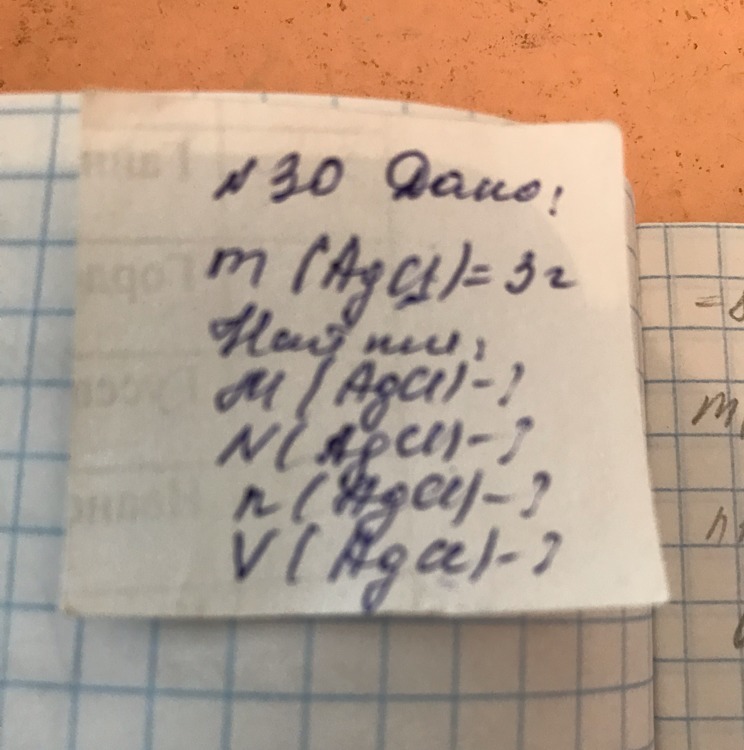 №30 Дано:
m (AgCl)= 3г
Найти:
M (AgCl)-?
N (AgCl)-?
n (AgCl)-?
V (AgCl)-?